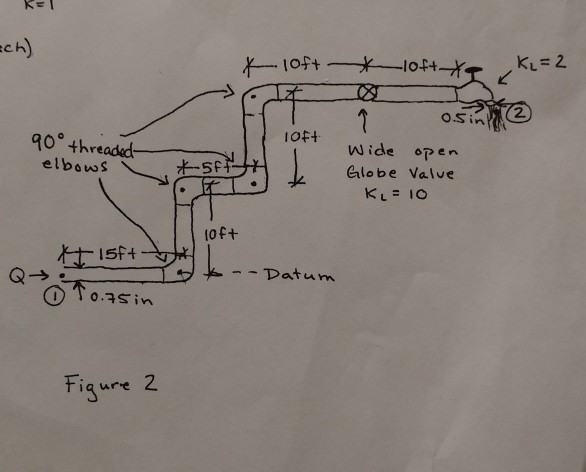 K=1
ech)
10ft
10ft
KL = 2
0.5in
2
10ft
90° threaded
elbows
5ft
Wide open
Globe Value
KL = 10
10ft
15ft
Q →
Datum
1
0.75in
Figure 2